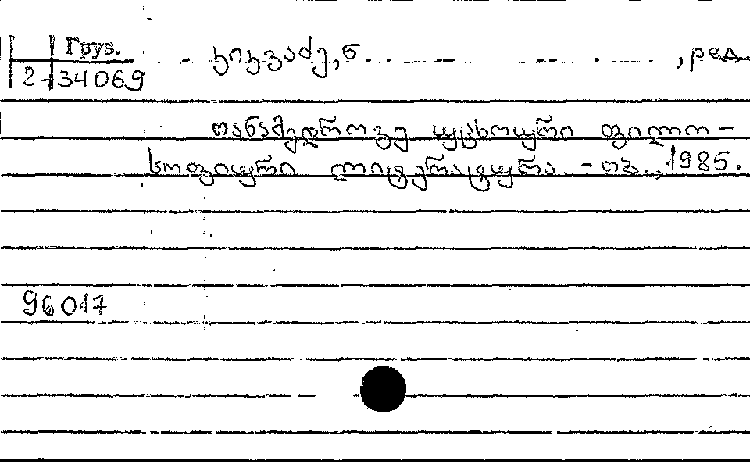 Груз.
2-34069
კიკვაძე, ნ. , ред.
თანამედროვე უცხოური ფილო-
სოფიური ლიტერატურა. - თბ., 1985.
96017